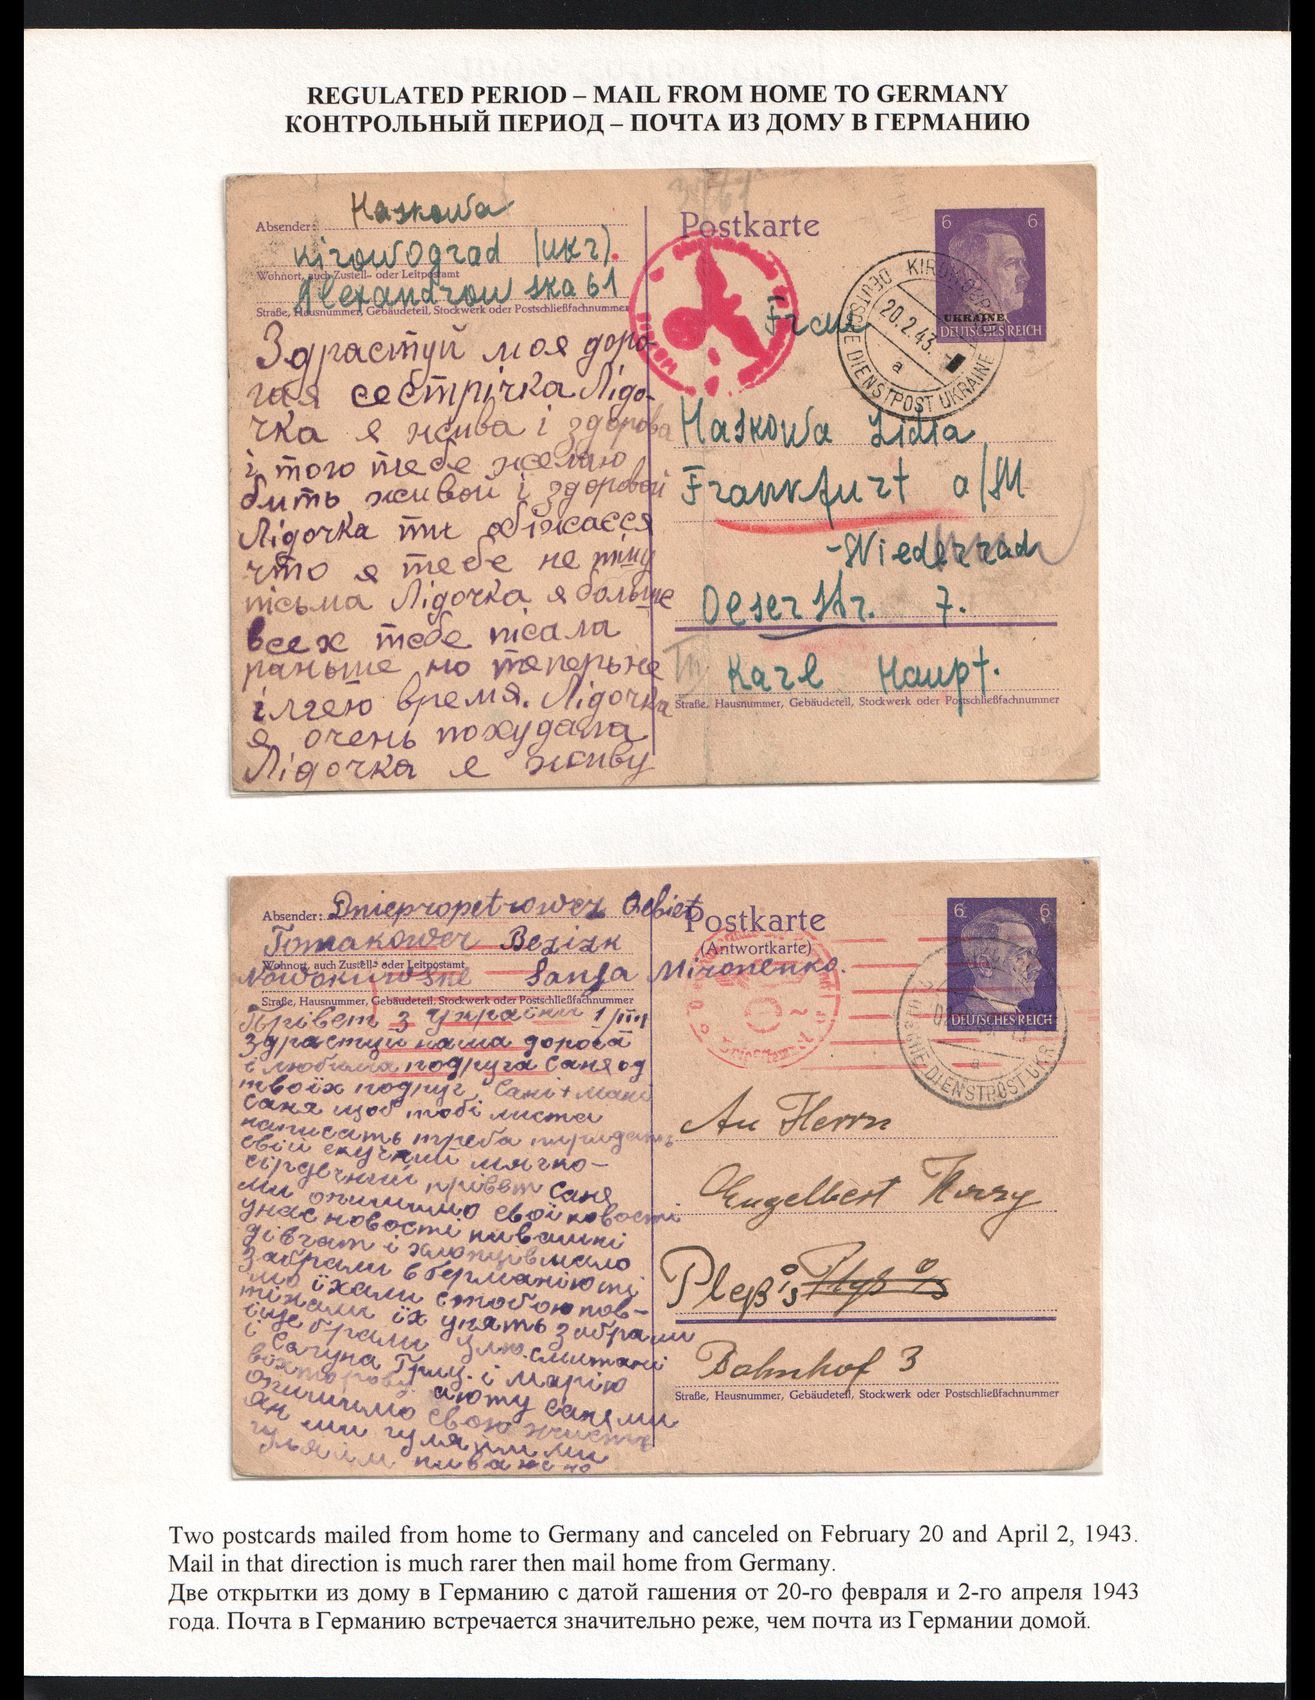 REGULATED PERIOD – MAIL FROM HOME TO GERMANY
КОНТРОЛЬНЫЙ ПЕРИОД – ПОЧТА ИЗ ДОМУ В ГЕРМАНИЮ
Absender: Haskowa
Kirowograd (Ukr).
Wohnort, auch Zustell- oder Leitpostamt
Alexandrowska 61
Straße, Hausnummer, Gebäudeteil, Stockwerk oder Postschließfachnummer
Здраствуй моя доро-
гая сестрічка Лідо-
чка я жива і здорова
і того тебе желаю
бить живой і здоровой
Лідочка ти обіжаєся
что я тебе не пішу
пісьма Лідочка я больше
всех тебе пісала
раньше но теперь не
імєю время. Лідочка
я очень похудала
Лідочка я живу
Postkarte
6 6
UKRAINE
DEUTSCHES REICH
KIROWOGRAD
20.2.43.
a
DEUTSCHE DIENSTPOST UKRAINE
Frau
Haskowa Lidia
Frankfurt a/M
-Niederrad
Oeserstr. 7.
Karl Haupt.
Straße, Hausnummer, Gebäudeteil, Stockwerk oder Postschließfachnummer
Absender: Dniepropetrower Gebiet
Tomakower Bezirk
Wohnort, auch Zustell- oder Leitpostamt
Sanja Mironenko.
Straße, Hausnummer, Gebäudeteil, Stockwerk oder Postschließfachnummer
Привет з України 1/III
здраствуй наша дорога
і любима подруга Саня од
твоїх подруг Сані + Мані
Саня щоб тобі листа
написать треба
свій скучний мягко-
сірдечний прівет Саня
ми опишимо свої новості
у нас новості
дівчат і хлопців мало
забрали в Германію ті
що їхали с тобою пов-
тікали їх упять забрали
іще брали
і Сачуна Гриц. і Марію
Саня ми
опишимо свою жисть
як ми гуляїм ми
гуляїм
Postkarte
(Antwortkarte)
6 6
DEUTSCHES REICH
a
DEUTSCHE DIENSTPOST UKR
An Herrn
Engelbert
Pleß O/S
Bahnhof 3
Straße, Hausnummer, Gebäudeteil, Stockwerk oder Postschließfachnummer
Two postcards mailed from home to Germany and canceled on February 20 and April 2, 1943.
Mail in that direction is much rarer then mail home from Germany.
Две открытки из дому в Германию с датой гашения от 20-го февраля и 2-го апреля 1943
года. Почта в Германию встречается значительно реже, чем почта из Германии домой.